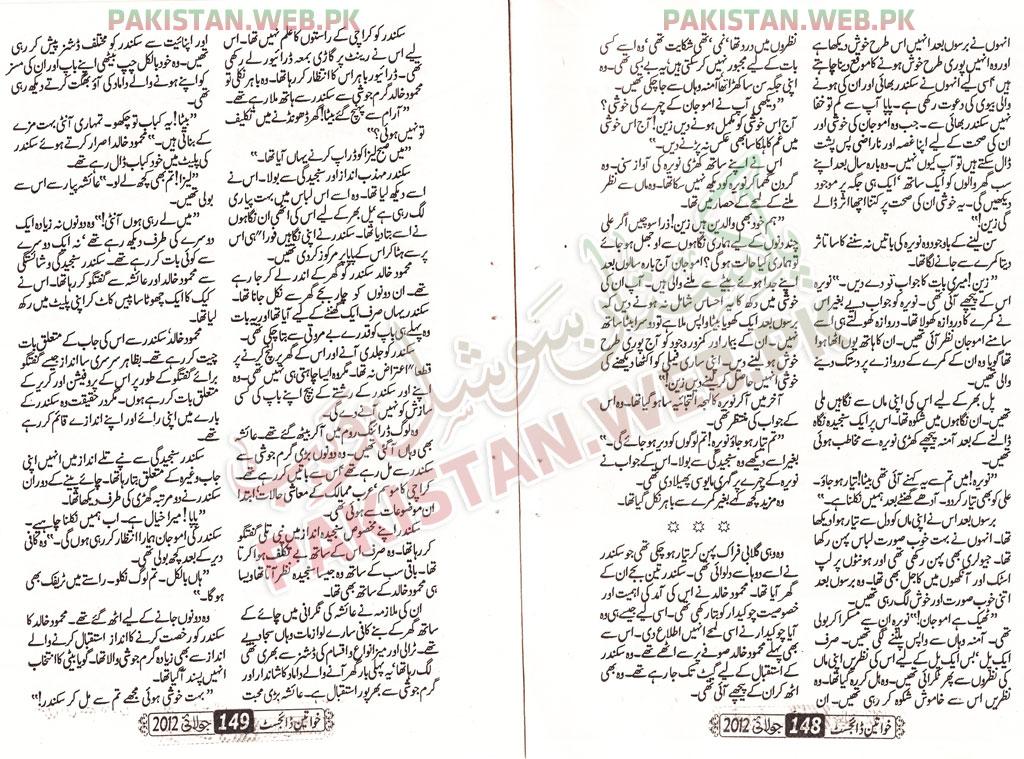 PAKISTAN.WEB.PK
انہوں نے برسوں بعد انہیں اس طرح خوش دیکھا ہے
اور وہ انہیں پوری طرح خوش ہونے کا موقع دینا چاہتے
ہیں اسی لیے انہوں نے سکندر بھائی اور ان کی ہونے
والی بیوی کی دعوت رکھی ہے۔ پاپا آپ سے کم تو خفا
نہیں سکندر بھائی سے۔ جب وہ اموجان کی خوشی اور
ان کی صحت کے لیے اپنا غصہ اور ناراضی پس پشت
ڈال سکتے ہیں تو آپ کیوں نہیں۔ وہ بارہ سال بعد اپنے
سب گھر والوں کو ایک ساتھ، ایک ہی جگہ پر موجود
دیکھیں گی۔ یہ خوشی ان کی صحت پر کتنا اچھا اثر ڈالے
گی زین!"
سن لینے کے باوجود وہ نویرہ کی باتیں نہ سننے کا سا تاثر
دیتا کمرے سے جانے لگا تھا۔
"زین! میری بات کا جواب تو دے دیں۔" نویرہ
اس کے پیچھے آئی تھی۔ نویرہ کو جواب دیے بغیر اس
نے کمرے کا دروازہ کھولا تھا۔ دروازہ کھولتے ہی اسے
سامنے اموجان نظر آئی تھیں۔ ان کا ہاتھ یوں اٹھا ہوا
تھا گویا وہ ان کے کمرے کے دروازے پر دستک دینے
والی تھیں۔
پل بھر کے لیے اس کی اپنی ماں سے نگاہیں ملی
تھیں۔ ان نگاہوں میں شکوہ تھا۔ اس پر ایک سنجیدہ نگاہ
ڈالنے کے بعد آمنہ پیچھے کھڑی نویرہ سے مخاطب ہوئی
تھیں۔
"نویرہ! میں تم سے یہ کہنے آئی تھی بیٹا! تیار ہو جاؤ۔
علی کو بھی تیار کر دو۔ آدھے گھنٹے بعد ہمیں نکلنا ہے۔"
برسوں بعد اس نے اپنی ماں کو دل سے تیار ہوا دیکھا
تھا۔ انہوں نے بہت خوب صورت لباس پہن رکھا
تھا۔ جیولری بھی پہن رکھی تھی اور ہونٹوں پر لپ
اسٹک اور آنکھوں میں کاجل بھی تھا۔ وہ برسوں بعد
اتنی خوب صورت اور خوش لگ رہی تھیں۔
"ٹھیک ہے اموجان!" نویرہ ان سے مسکرا کر بولی
تھی۔ آمنہ وہاں سے واپس پلٹنے لگی تھیں۔ صرف
ایک پل، بس ایک پل کے لیے اس کی نظریں اپنی ماں
کی نظروں سے پھر ٹکرائی تھیں۔ وہ ہل کر رہ گیا تھا۔ وہ
نظریں اس سے خاموش شکوہ کر رہی تھیں۔ ان
نظروں میں درد تھا، نمی تھی، شکایت تھی، وہ اسے کسی
بات کے لیے مجبور نہیں کر سکتی ہیں، یہ بے بسی تھی۔ وہ
اپنی جگہ سن سا کھڑا تھا، آمنہ وہاں سے جا چکی تھیں۔
"دیکھی آپ نے اموجان کے چہرے کی خوشی؟
آج اس خوشی کو مکمل ہونے دیں زین! آج اس خوشی
میں غم کا ہلکا سا بھی عکس نہ پڑنے دیں۔"
اس نے اپنے ساتھ کھڑی نویرہ کی آواز سنی۔ وہ
گردن گھما کر نویرہ کو دیکھ نہیں سکا تھا۔ وہ ماں سے نظر
ملنے کے لمحے کے حصار میں تھا۔
"ہم خود بھی والدین ہیں زین! ذرا سوچیں اگر علی
چند دنوں کے لیے ہماری نگاہوں سے اوجھل ہو جائے
تو ہماری کیا حالت ہو گی؟ اموجان آج بارہ سالوں بعد
اپنے جدا ہوئے بیٹے سے ملنے والی ہیں۔ آپ ان کی
خوشی میں رکھ کا یہ احساس شامل نہ ہونے دیں کہ
برسوں بعد ایک کھویا بیٹا واپس ملا ہے تو دوسرا بیٹا ساتھ
نہیں۔ ان کے بیمار اور کمزور وجود کو آج پوری طرح
خوشی حاصل کرنے دیں۔ اپنی ساری فیملی کو اکٹھا دیکھنے کی
خوشی انہیں حاصل کر لینے دیں زین!"
آخر میں آ کر نویرہ کا لہجہ التجائیہ سا ہو گیا تھا۔ وہ اس
کے جواب کی منتظر تھی۔
"تم تیار ہو جاؤ نویرہ! تم لوگوں کو دیر ہو جائے گی۔"
بغیر اسے دیکھے وہ سنجیدگی سے بولا۔ اس کے جواب نے
نویرہ کے چہرے پر گہری مایوسی پھیلا دی تھی۔
وہ مزید کچھ کہے بغیر کمرے سے باہر نکل گیا تھا۔
☼ ☼ ☼
وہ وہی گلابی فراک پہن کر تیار ہو چکی تھی جو سکندر
نے اسے دوہا سے دلوائی تھی۔ سکندر تین بجے ان کے
گھر آیا تھا۔ محمود خالد نے اس کی آمد کی اہمیت اور
خصوصیت چوکیدار کو بتا رکھی تھی۔ اسی لیے جیسے ہی وہ
آیا چوکیدار نے اسی لمحے انہیں اطلاع دی۔ اس سے
پہلے محمود خالد صوفے پر سے اٹھے تھے۔ وہ سکندر
کے استقبال کے لیے گیٹ تک جا رہے تھے۔ وہ بھی
اٹھ کر ان کے پیچھے آئی تھی۔
خواتین ڈائجسٹ 148 جولائی 2012
PAKISTAN.WEB.PK
سکندر کو کراچی کے راستوں کا علم نہیں تھا۔ اس
لیے اس نے رینٹ پر گاڑی بمعہ ڈرائیور لے رکھی
تھی۔ ڈرائیور باہر اس کا انتظار کر رہا تھا۔ وہ باہر نکلی تو
محمود خالد گرم جوشی سے سکندر سے ہاتھ ملا رہے تھے۔
"آرام سے پہنچ گئے بیٹا! گھر ڈھونڈنے میں تکلیف
تو نہیں ہوئی؟"
"میں صبح لیزا کو ڈراپ کرنے یہاں آیا تھا۔"
سکندر مہذب انداز اور سنجیدگی سے بولا۔ اس نے
اسے دیکھ لیا تھا۔ وہ اسے اس لباس میں بہت پیاری
لگ رہی ہے، پل بھر کے لیے اس کی اٹھی ان نگاہوں
نے اسے بتا دیا تھا۔ سکندر نے اپنی نگاہیں فوراً ہی اس
پر سے ہٹا کر اس کے پاپا پر مرکوز کر دی تھیں۔
محمود خالد سکندر کو گھر کے اندر لے کر جا رہے
تھے۔ ان دونوں کو چار بجے گھر سے نکل جانا تھا۔
سکندر یہاں صرف ایک گھنٹے کے لیے آیا تھا اور یہ بات
وہ پہلے ہی باپ کو قدرے بے مروتی سے بتا چکی تھی۔
سکندر کو جلدی آنے اور اس کے گھر پر لنچ کرنے پر
قطعاً اعتراض نہ تھا۔ مگر وہ ایسا چاہتی ہی نہیں تھی۔ وہ
اپنے اور سکندر کے رشتے کے بیچ اپنے باپ کی کسی
سازش کو نہیں آنے دے گی۔
وہ لوگ ڈرائنگ روم میں آ کر بیٹھ گئے تھے۔ عائشہ
بھی وہاں آ گئی تھیں۔ وہ دونوں بڑی گرم جوشی سے
سکندر سے مل رہے تھے، اس سے باتیں کر رہے تھے۔
کراچی کا موسم، عرب ممالک کے معاشی حالات، ابتدا
ان موضوعات سے ہوئی تھی۔
سکندر اپنے مخصوص سنجیدہ انداز میں نپی تلی گفتگو
کر رہا تھا۔ وہ صرف اس کے ساتھ بے تکلف ہوا کرتا
تھا۔ باقی سب کے ساتھ وہ جیسا سنجیدہ نظر آتا تھا ویسا
ہی محمود خالد کے ساتھ بھی تھا۔
ان کی ملازمہ نے عائشہ کی نگرانی میں چائے کے
ساتھ گھر کے بنے کافی سارے لوازمات وہاں سجا دیے
تھے۔ ٹرالی اور میز انواع و اقسام کی ڈشز سے بھری تھی۔
لگ رہا تھا، یہ پہلی بار گھر آنے والے داماد کا شاندار اور
گرم جوشی سے بھرپور استقبال ہے۔ عائشہ بڑی محبت
اور اپنائیت سے سکندر کو مختلف ڈشز پیش کر رہی
تھیں۔ وہ خود بالکل چپ بیٹھی اپنے باپ اور ان کی مسز
کو اپنے ہونے والے داماد کی آؤ بھگت کرتے دیکھ رہی
تھی۔
"بیٹا! یہ کباب تو چکھو۔ تمہاری آنٹی بہت مزے
کے بناتی ہیں۔" محمود خالد اصرار کرتے ہوئے سکندر
کی پلیٹ میں خود کباب ڈال رہے تھے۔
"لیزا! تم بھی کچھ لے لو۔" عائشہ پیار سے اس سے
بولی تھیں۔
"میں لے رہی ہوں آنٹی!" وہ دونوں نہ زیادہ ایک
دوسرے کی طرف دیکھ رہے تھے، نہ ایک دوسرے
سے کوئی بات کر رہے تھے۔ سکندر سنجیدگی و شائستگی
سے محمود خالد اور عائشہ سے گفتگو کر رہا تھا۔ اس نے
کیک کا ایک چھوٹا سا پیس کاٹ کر اپنی پلیٹ میں رکھ
لیا تھا۔
محمود خالد سکندر سے اس کی جاب کے متعلق بات
چیت کر رہے تھے۔ بظاہر سرسری سا انداز جیسے گفتگو
برائے گفتگو کے طور پر اس کے پروفیشن اور کریئر کے
متعلق بات کر رہے ہوں۔ مگر در حقیقت وہ سکندر کے
بارے میں اپنی رائے اور اپنے اندازے قائم کر رہے
تھے۔
سکندر سنجیدگی سے نپے تلے انداز میں انہیں اپنی
جاب وغیرہ کے متعلق بتا رہا تھا۔ چائے پینے کے دوران
سکندر نے دو مرتبہ گھڑی کی طرف دیکھا تھا۔
"پاپا! میرا خیال ہے۔ اب ہمیں نکلنا چاہیے۔
سکندر کی اموجان ہمارا انتظار کر رہی ہوں گی۔" وہ کافی
دیر کے بعد کچھ بولی تھی۔
"ہاں بالکل۔ تم لوگ نکلو۔ راستے میں ٹریفک بھی
ہو گا۔"
وہ دونوں جانے کے لیے اٹھ گئے تھے۔ محمود خالد کا
سکندر کو رخصت کرنے کا انداز استقبال کرنے والے
انداز سے بھی زیادہ گرم جوشی والا تھا۔ گویا بیٹی کا انتخاب
انہیں پسند آ گیا تھا۔
"بہت خوشی ہوئی مجھے تم سے مل کر سکندر!"
خواتین ڈائجسٹ 149 جولائی 2012
PAKISTAN.WEB.PK